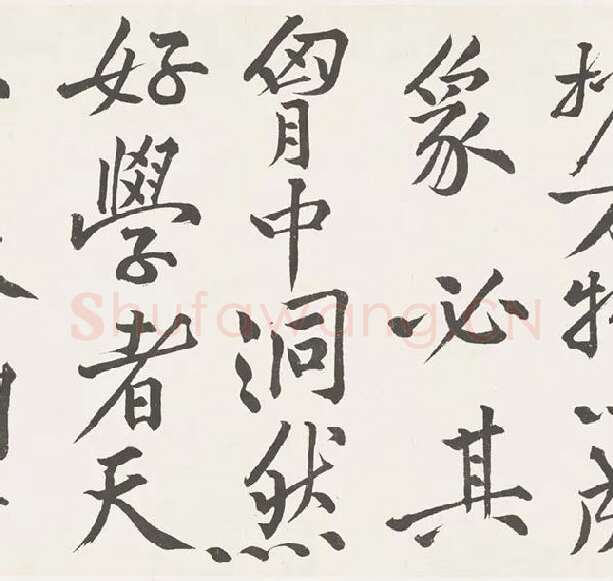 万物
象必其
胷中洞然
好學者天
Shufawang.CN